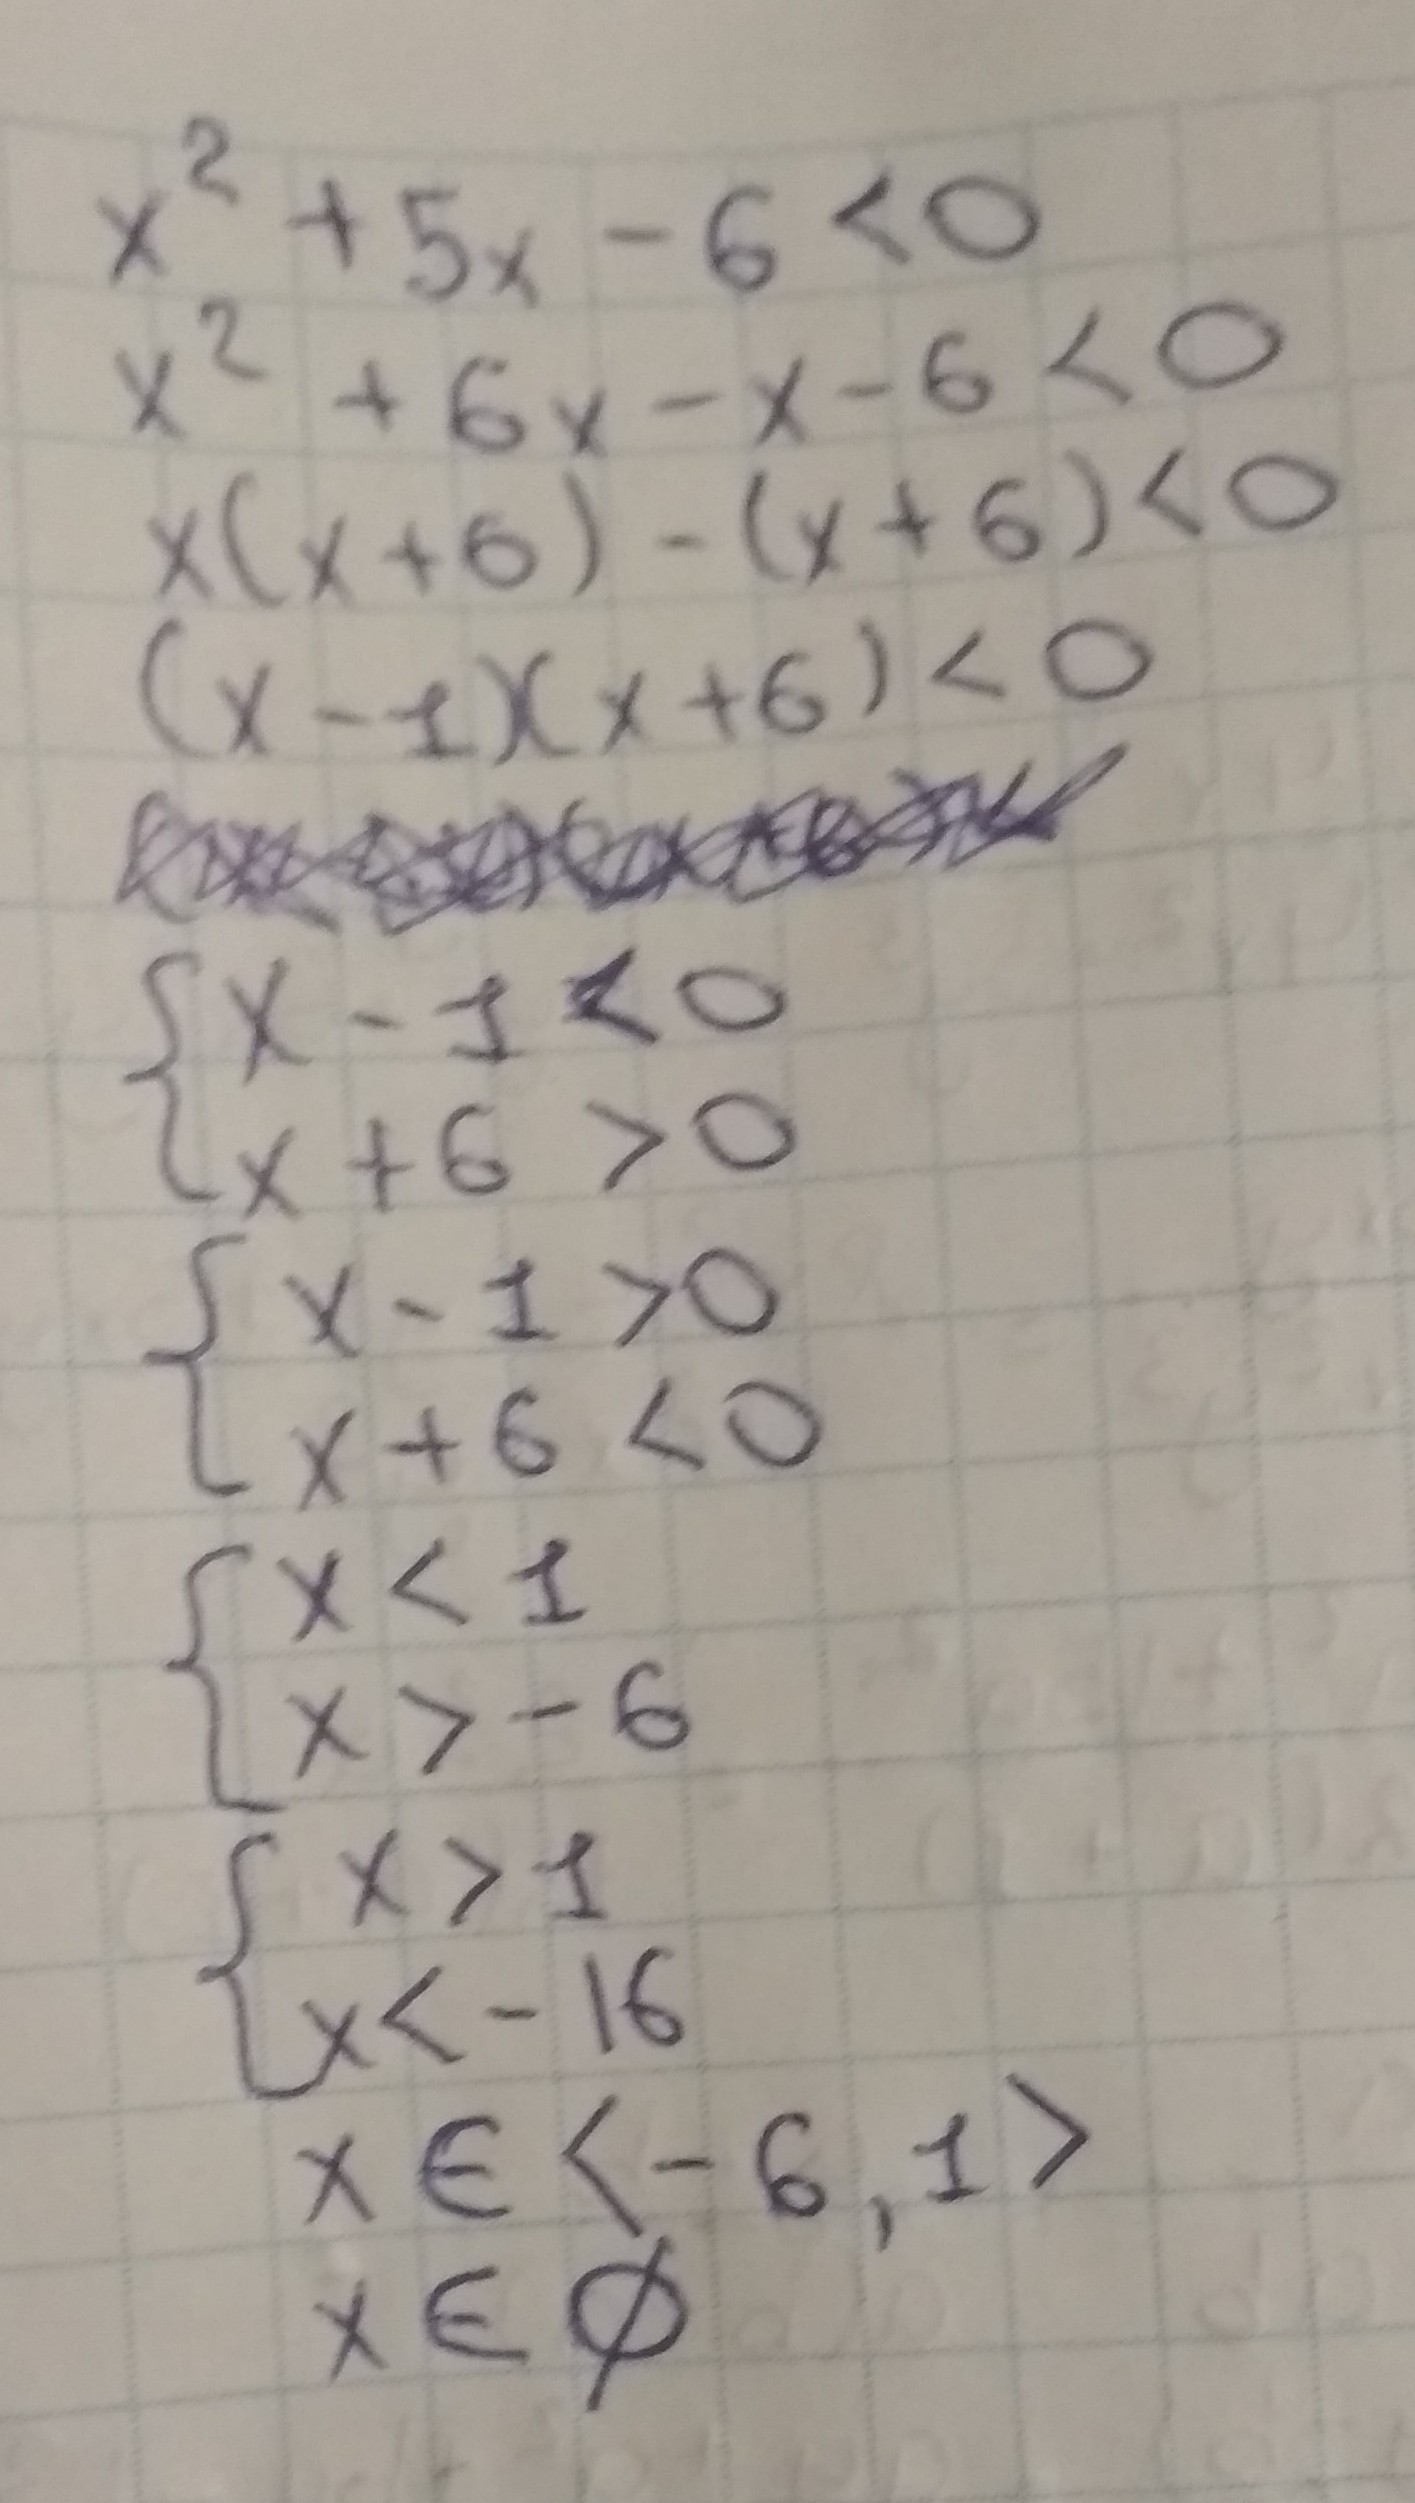 x² + 5x - 6 < 0
x² + 6x - x - 6 < 0
x(x+6) - (x+6) < 0
(x-1)(x+6) < 0
{x - 1 < 0
x + 6 > 0
{x - 1 > 0
x + 6 < 0
{x < 1
x > -6
{x > 1
x < -16
x ∈ <-6, 1>
x ∈ ∅